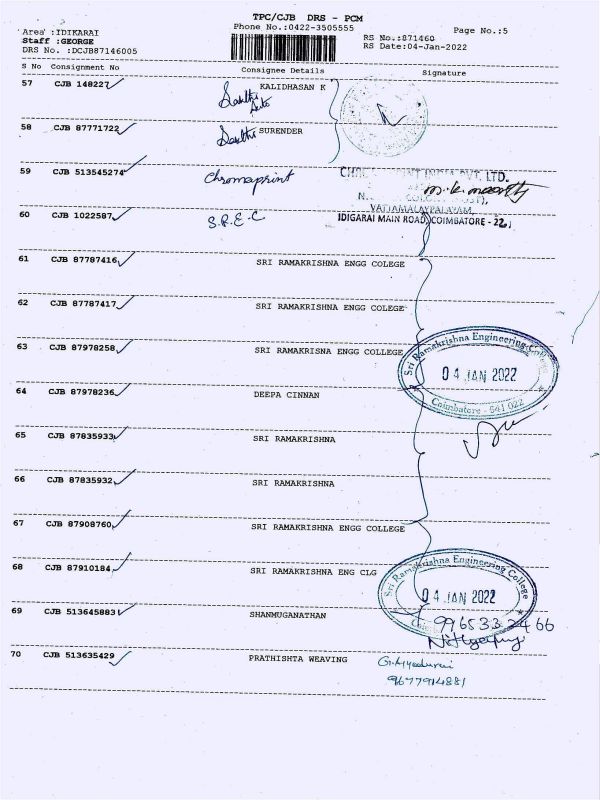 TPC/CJB DRS - PCM
Area :IDIKARAI Phone No.:0422-3505555 Page No.:5
Staff :GEORGE RS No.:871460
DRS No. :DCJB87146005 RS Date:04-Jan-2022
S No Consignment No Consignee Details Signature
57 CJB 148227 KALIDHASAN K
58 CJB 87771722 SURENDER
59 CJB 513545274 Chromaprint
PVT. LTD.
VATTAMALAYPALAYAM,
60 CJB 1022587 S.R.E.C IDIGARAI MAIN ROAD, COIMBATORE - 22
61 CJB 87787416 SRI RAMAKRISHNA ENGG COLEGE
62 CJB 87787417 SRI RAMAKRISHNA ENGG COLEGE
63 CJB 87978258 SRI RAMAKRISHNA ENGG COLLEGE
Sri Ramakrishna Engineering College
04 JAN 2022
Coimbatore - 641 022
64 CJB 87978236 DEEPA CINNAN
65 CJB 87835933 SRI RAMAKRISHNA
66 CJB 87835932 SRI RAMAKRISHNA
67 CJB 87908760 SRI RAMAKRISHNA ENGG COLLEGE
68 CJB 87910184 SRI RAMAKRISHNA ENG CLG
Sri Ramakrishna Engineering College
04 JAN 2022
69 CJB 513645883 SHANMUGANATHAN
70 CJB 513635429 PRATHISHTA WEAVING
9677914881